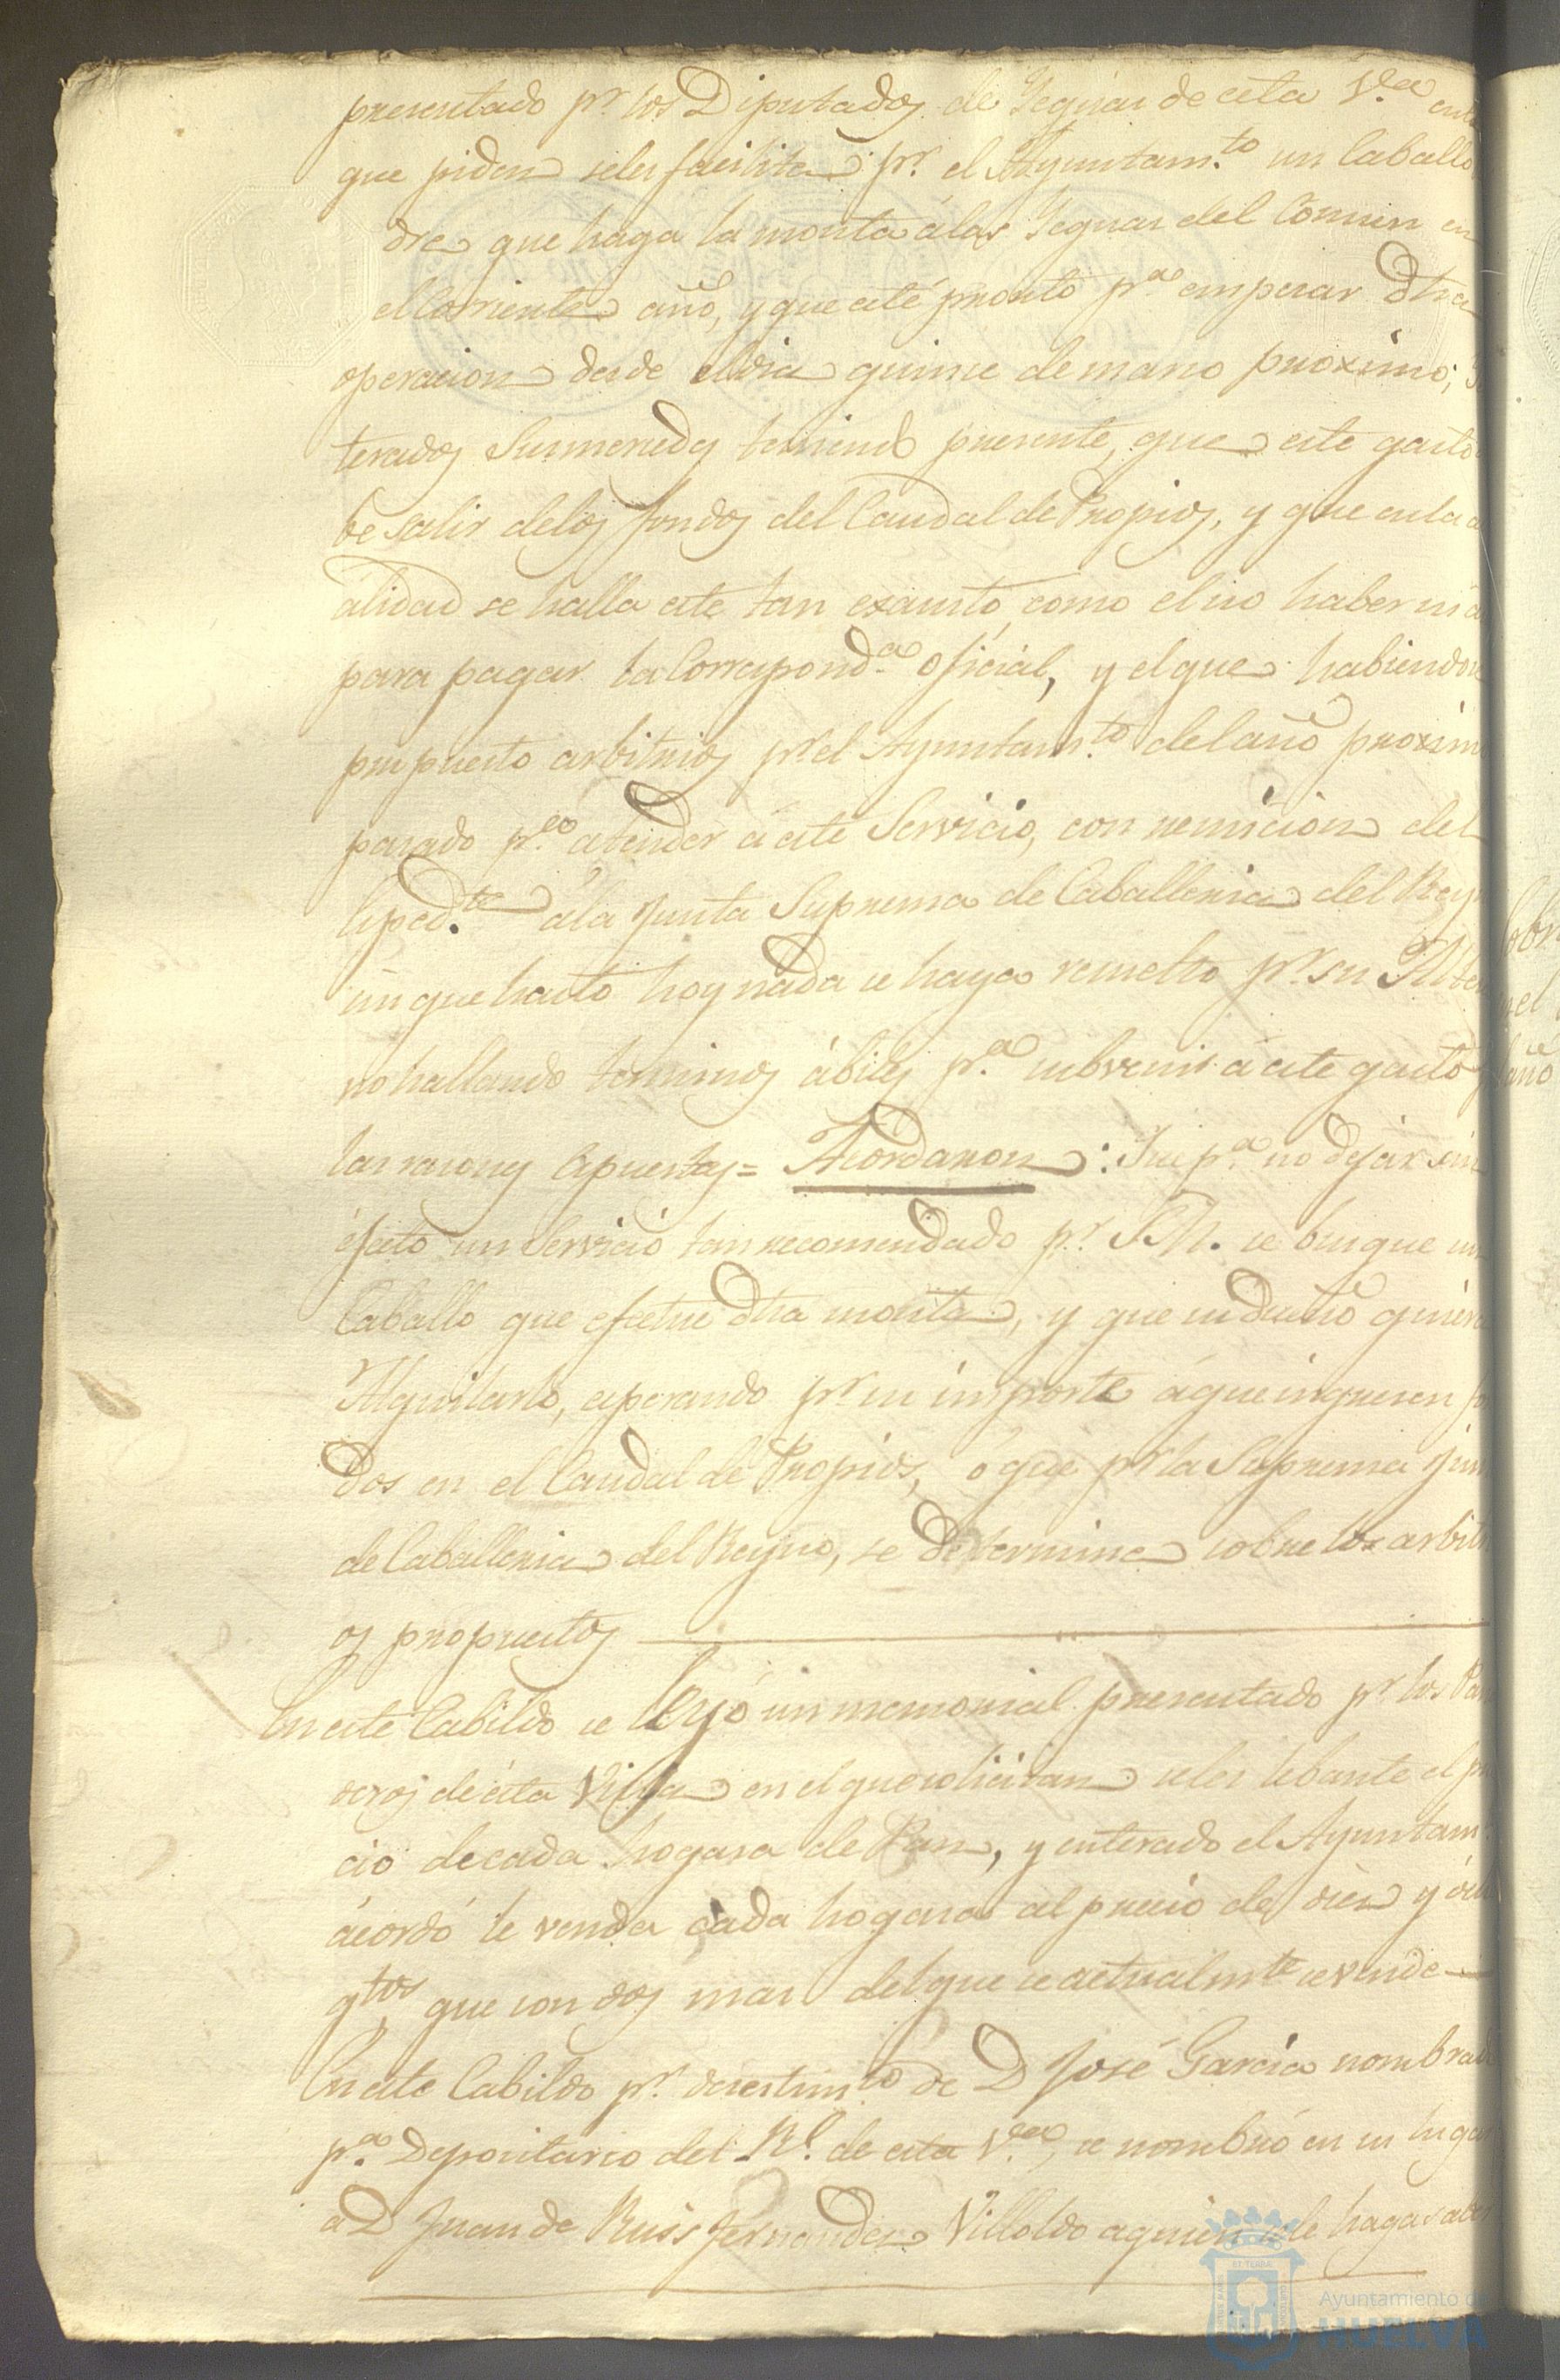 presentado pr. los Diputados de Yeguas de esta Va. en
que piden seles facilite pr. el Ayuntamto. un Caballo
dre que haga la monta álas Yeguas del Comun en
el Corriente año, y que esté pronto pa. empesar dha
operacion desde el dia quinse de marso proximo;
terados Susmersedes teniendo presente, que este gasto
be salir delos fondos del Caudal de Propios, y que enla a
alidad se halla este tan exausto, como el no haber ni a
para pagar la Correspondа. oficial, y el que habiendose
propuesto arbitrios pr el Ayuntamto. del año proximo
pasado pa. atender á este Servicio, con remision del
Espedte. ála Junta Suprema de Caballeria del Rey
un que hasta hoy nada se haya resuelto pr. su Alte
no hallando terminos ábiles pa. subvenir á este gasto
las rasones Espuestas = Acordaron: Que pa. no dejar sin
éfecto un Servicio tan recomendado pr. S.M. se busque un
Caballo que efectue dha monta, y que su dueño quiera
Alquilarlo, esperando pr su importe áque ingresen fo
dos en el Caudal de Propios, ó que pr la Suprema Jun
de Caballeria del Reyno, se determine sobre los arbitr
os propuestos
En este Cabildo se leyó un memorial presentado pr los Pan
deros de ésta Villa en el que solicitan seles lebante el pre
cio de cada hogasa de Pan, y enterado el Ayuntamto
ácordó se venda cada hogasa al precio de dies y och
qtos que son dos mas del que se actualmte se vende
En este Cabildo pr. desestimto de D José Garcia nombrado
pa. Depositario del Rl. de esta Va. se nombró en su lugar
a D Juan de Ruis Fernandes Villoldo aquien sele haga saber
Ayuntamiento de
HUELVA